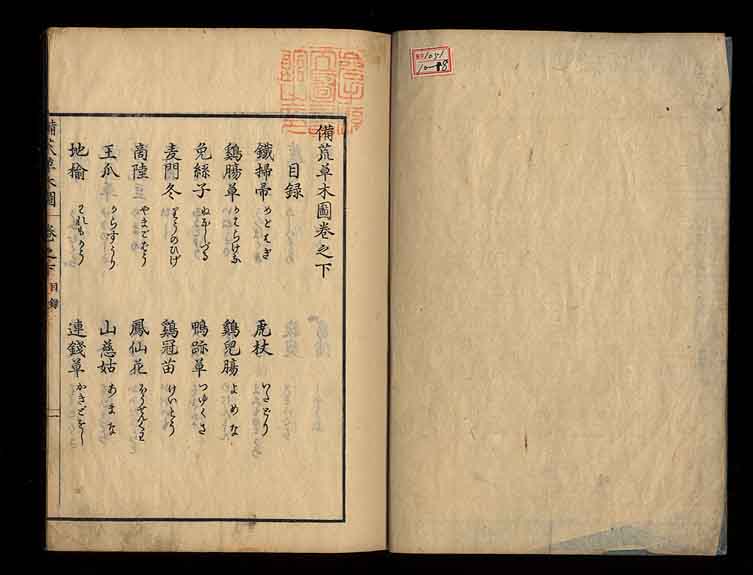 備荒草木圖卷之下
目録
鐵掃帚 めどはぎ 虎杖 いたどり
鷄腸草 かはらけな 鷄兒腸 よめな
兔絲子 ねなしづる 鴨跡草 つゆくさ
麦門冬 りうのひげ 鷄冠苗 けいとう
商陸 やまごばう 鳳仙花 ほうせんくわ
王瓜 からすうり 山慈姑 あまな
地楡 われもかう 連錢草 かきどをし
備荒草木圖 卷之下 目録 一